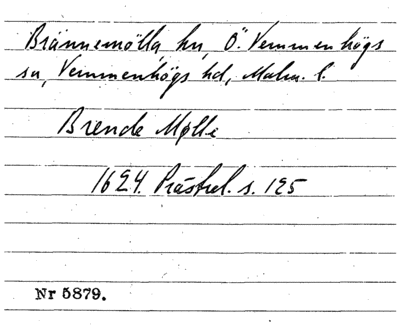 Brännemölla kv, Ö. Vemmenhögs
sn, Vemmenhögs hd, Malm. l.
Brende Mølle
1624. Prästrel. s. 125
Nr 5879.